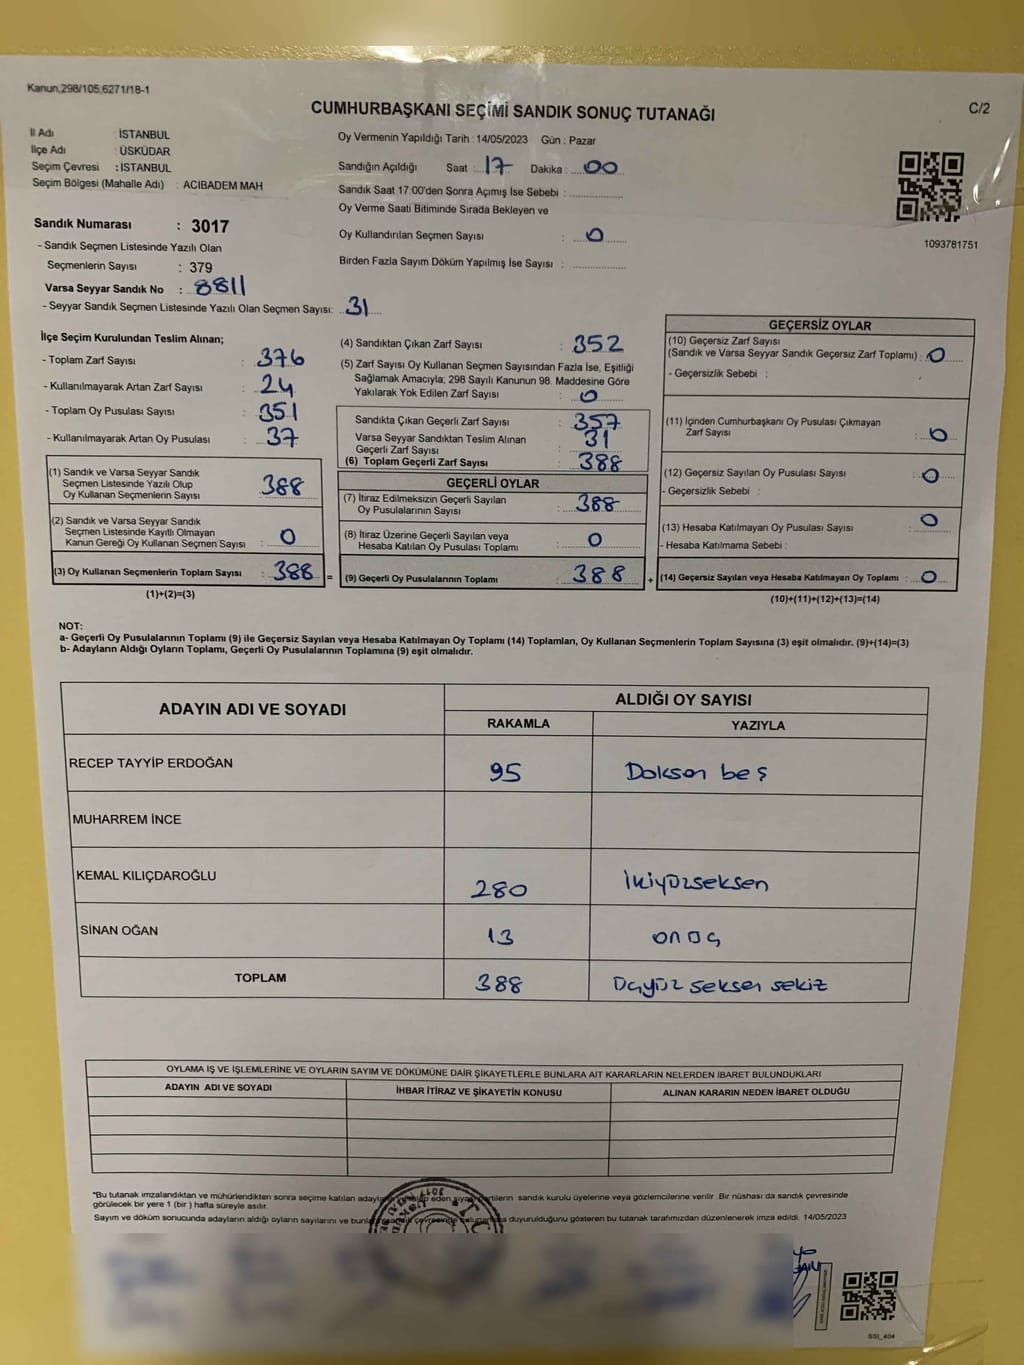 Kanun,298/105,6271/18-1
CUMHURBAŞKANI SEÇİMİ SANDIK SONUÇ TUTANAĞI
C/2
İl Adı : İSTANBUL
İlçe Adı : ÜSKÜDAR
Seçim Çevresi : İSTANBUL
Seçim Bölgesi (Mahalle Adı) : ACIBADEM MAH
Oy Vermenin Yapıldığı Tarih : 14/05/2023 Gün : Pazar
Sandığın Açıldığı Saat : 17 Dakika : 00
Sandık Saat 17:00'den Sonra Açımış İse Sebebi :
Oy Verme Saati Bitiminde Sırada Bekleyen ve
Oy Kullandırılan Seçmen Sayısı : 0
Birden Fazla Sayım Döküm Yapılmış İse Sayısı :
1093781751
Sandık Numarası : 3017
- Sandık Seçmen Listesinde Yazılı Olan
Seçmenlerin Sayısı : 379
Varsa Seyyar Sandık No : 8811
- Seyyar Sandık Seçmen Listesinde Yazılı Olan Seçmen Sayısı: 31
İlçe Seçim Kurulundan Teslim Alınan;
- Toplam Zarf Sayısı : 376
- Kullanılmayarak Artan Zarf Sayısı : 24
- Toplam Oy Pusulası Sayısı : 351
- Kullanılmayarak Artan Oy Pusulası : 37
(1) Sandık ve Varsa Seyyar Sandık
Seçmen Listesinde Yazılı Olup
Oy Kullanan Seçmenlerin Sayısı : 388
(2) Sandık ve Varsa Seyyar Sandık
Seçmen Listesinde Kayıtlı Olmayan
Kanun Gereği Oy Kullanan Seçmen Sayısı : 0
(3) Oy Kullanan Seçmenlerin Toplam Sayısı : 388 =
(1)+(2)=(3)
(4) Sandıktan Çıkan Zarf Sayısı : 352
(5) Zarf Sayısı Oy Kullanan Seçmen Sayısından Fazla İse, Eşitliği
Sağlamak Amacıyla; 298 Sayılı Kanunun 98. Maddesine Göre
Yakılarak Yok Edilen Zarf Sayısı : 0
Sandıkta Çıkan Geçerli Zarf Sayısı : 357
Varsa Seyyar Sandıktan Teslim Alınan
Geçerli Zarf Sayısı : 31
(6) Toplam Geçerli Zarf Sayısı : 388
GEÇERLİ OYLAR
(7) İtiraz Edilmeksizin Geçerli Sayılan
Oy Pusulalarının Sayısı : 388
(8) İtiraz Üzerine Geçerli Sayılan veya
Hesaba Katılan Oy Pusulası Toplamı : 0
(9) Geçerli Oy Pusulalarının Toplamı : 388 +
GEÇERSİZ OYLAR
(10) Geçersiz Zarf Sayısı
(Sandık ve Varsa Seyyar Sandık Geçersiz Zarf Toplamı) : 0
- Geçersizlik Sebebi :
(11) İçinden Cumhurbaşkanı Oy Pusulası Çıkmayan
Zarf Sayısı : 0
(12) Geçersiz Sayılan Oy Pusulası Sayısı : 0
- Geçersizlik Sebebi :
(13) Hesaba Katılmayan Oy Pusulası Sayısı : 0
- Hesaba Katılmama Sebebi :
(14) Geçersiz Sayılan veya Hesaba Katılmayan Oy Toplamı : 0
(10)+(11)+(12)+(13)=(14)
NOT:
a- Geçerli Oy Pusulalarının Toplamı (9) ile Geçersiz Sayılan veya Hesaba Katılmayan Oy Toplamı (14) Toplamları, Oy Kullanan Seçmenlerin Toplam Sayısına (3) eşit olmalıdır. (9)+(14)=(3)
b- Adayların Aldığı Oyların Toplamı, Geçerli Oy Pusulalarının Toplamına (9) eşit olmalıdır.
ADAYIN ADI VE SOYADI
ALDIĞI OY SAYISI
RAKAMLA YAZIYLA
RECEP TAYYİP ERDOĞAN 95 Doksan beş
MUHARREM İNCE
KEMAL KILIÇDAROĞLU 280 ikiyüzseksen
SİNAN OĞAN 13 onüç
TOPLAM 388 üçyüz seksen sekiz
OYLAMA İŞ VE İŞLEMLERİNE VE OYLARIN SAYIM VE DÖKÜMÜNE DAİR ŞİKAYETLERLE BUNLARA AİT KARARLARIN NELERDEN İBARET BULUNDUKLARI
ADAYIN ADI VE SOYADI İHBAR İTİRAZ VE ŞİKAYETİN KONUSU ALINAN KARARIN NEDEN İBARET OLDUĞU
*Bu tutanak imzalandıktan ve mühürlendikten sonra seçime katılan adayların eden siyasi partilerin sandık kurulu üyelerine veya gözlemcilerine verilir. Bir nüshası da sandık çevresinde
görülecek bir yere 1 (bir) hafta süreyle asılır.
Sayım ve döküm sonucunda adayların aldığı oyların sayılarını ve çevresinde duyurulduğunu gösteren bu tutanak tarafımızdan düzenlenerek imza edildi. 14/05/2023
3017
T.C.
SSI_404